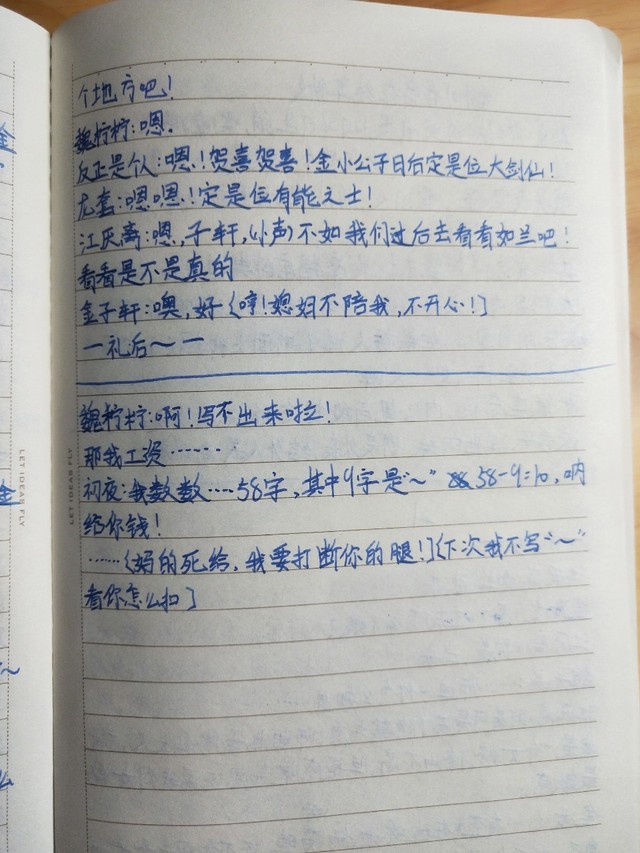 个地方吧！
魏柠柠：嗯.
反正是个人：嗯！贺喜贺喜！金小公子日后定是位大剑仙！
龙套：嗯嗯！定是位有能之士！
江厌离：嗯，子轩，(小声)不如我们过后去看看如兰吧！
看看是不是真的
金子轩：噢，好〔哼！媳妇不陪我，不开心！〕
一礼后～一
魏柠柠：啊！写不出来啦！
那我工资……
初夜：我数数……58字，其中9字是“～” 58-9=10，呐
给你钱！
……〔妈的死给，我要打断你的腿！〕〔下次我不写“～”
看你怎么扣〕
LET IDEAS FLY
LET IDEAS FLY
金
金
～
么